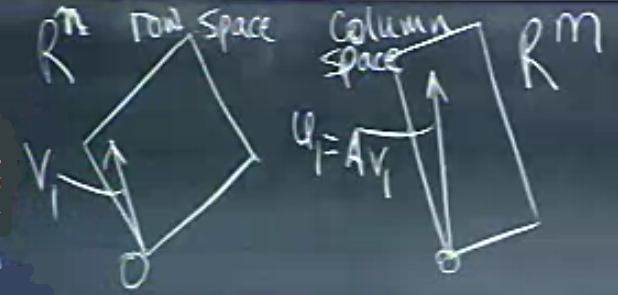 Rⁿ row space
column
space
Rᵐ
v₁
u₁=Av₁
O
O